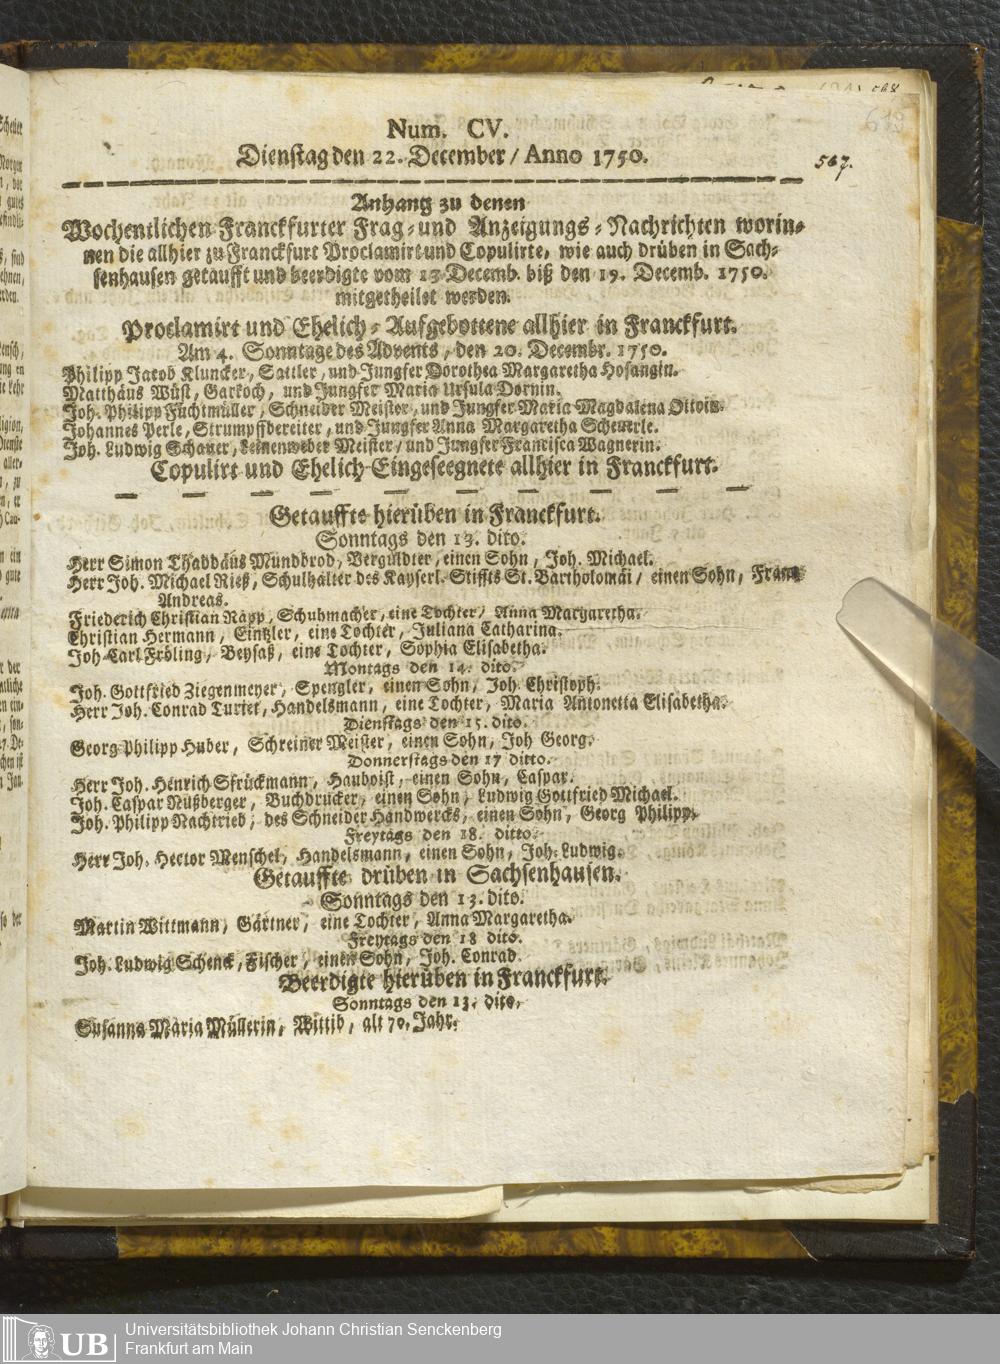 Num. CV.
Dienstag den 22. December / Anno 1750.
567.
Anhang zu denen
Wochentlichen Franckfurter Frag- und Anzeigungs-Nachrichten worin-
nen die allhier zu Franckfurt Proclamirt und Copulirte, wie auch drüben in Sach-
senhausen getaufft und beerdigte vom 13 Decemb. biß den 19. Decemb. 1750.
mitgetheilet werden.
Proclamirt und Ehelich-Aufgebottene allhier in Franckfurt.
Am 4. Sonntage des Advents, den 20. Decembr. 1750.
Philipp Jacob Kluncker, Sattler, und Jungfer Dorothea Margaretha Hosangin.
Matthäus Wüst, Garkoch, und Jungfer Maria Ursula Dornin.
Joh. Philipp Fuchtmüller, Schneider Meister, und Jungfer Maria Magdalena Ottoin.
Johannes Perle, Strumpffbereiter, und Jungfer Anna Margaretha Scheuerle.
Joh. Ludwig Schauer, Leinenweber Meister / und Jungfer Francisca Wagnerin.
Copulirt und Ehelich-Eingeseegnete allhier in Franckfurt.
Getauffte hierüben in Franckfurt.
Sonntags den 13. dito.
Herr Simon Thaddäus Mundbrod, Verguldter, einen Sohn, Joh. Michael.
Herr Joh. Michael Rieß, Schulhalter des Kayserl. Stiffts St. Bartholomäi / einen Sohn, Frantz
Andreas.
Friederich Christian Rapp, Schuhmacher, eine Tochter / Anna Margaretha.
Christian Hermann, Eintzler, eine Tochter, Juliana Catharina.
Joh. Carl Fröling, Beysaß, eine Tochter, Sophia Elisabetha.
Montags den 14. dito.
Joh. Gottfried Ziegenmeyer, Spengler, einen Sohn, Joh. Christoph.
Herr Joh. Conrad Turiet, Handelsmann, eine Tochter, Maria Antonetta Elisabetha.
Dienstags den 15. dito.
Georg Philipp Huber, Schreiner Meister, einen Sohn, Joh Georg.
Donnerstags den 17 ditto.
Herr Joh. Henrich Strückmann, Hauboist, einen Sohn, Caspar.
Joh. Caspar Nüßberger, Buchdrucker, einen Sohn, Ludwig Gottfried Michael.
Joh. Philipp Nachtrieb, des Schneider Handwercks, einen Sohn, Georg Philipp.
Freytags den 18. ditto.
Herr Joh. Hector Menschel, Handelsmann, einen Sohn, Joh. Ludwig.
Getauffte drüben in Sachsenhausen.
Sonntags den 13. dito.
Martin Wittmann, Gärtner, eine Tochter, Anna Margaretha.
Freytags den 18 dito.
Joh. Ludwig Schenck, Fischer, einen Sohn, Joh. Conrad.
Beerdigte hierüben in Franckfurt.
Sonntags den 13. dito.
Susanna Maria Müllerin, Wittib, alt 70. Jahr.
UB
Universitätsbibliothek Johann Christian Senckenberg
Frankfurt am Main